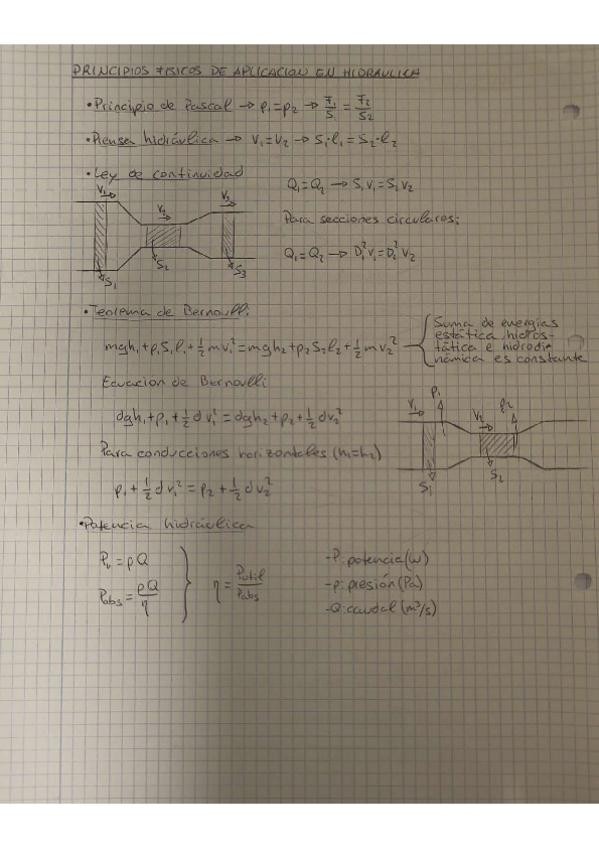 PRINCIPIOS FISICOS DE APLICACION EN HIDRAULICA
• Principio de Pascal → p₁=p₂ → F₁/S₁ = F₂/S₂
• Prensa hidráulica → V₁=V₂ → S₁·l₁=S₂·l₂
• Ley de continuidad
V₁
V₂
V₃
S₁
S₂
S₃
Q₁=Q₂ → S₁V₁=S₂V₂
Para secciones circulares:
Q₁=Q₂ → D₁²V₁=D₂²V₂
• Teorema de Bernoulli:
mgh₁+p₁S₁l₁+½mv₁²=mgh₂+p₂S₂l₂+½mv₂²
Suma de energías
estática, hidros-
tática e hidrodi-
námica es constante
Ecuacion de Bernoulli:
dgh₁+p₁+½dv₁²=dgh₂+p₂+½dv₂²
Para conducciones horizontales (h₁=h₂)
p₁+½dv₁²=p₂+½dv₂²
V₁
P₁
V₂
P₂
S₁
S₂
• Potencia hidráulica
Pᵤ=pQ
Pabs=pQ/η
η=Pútil/Pabs
-P: potencia (w)
-p: presión (Pa)
-Q: caudal (m³/s)